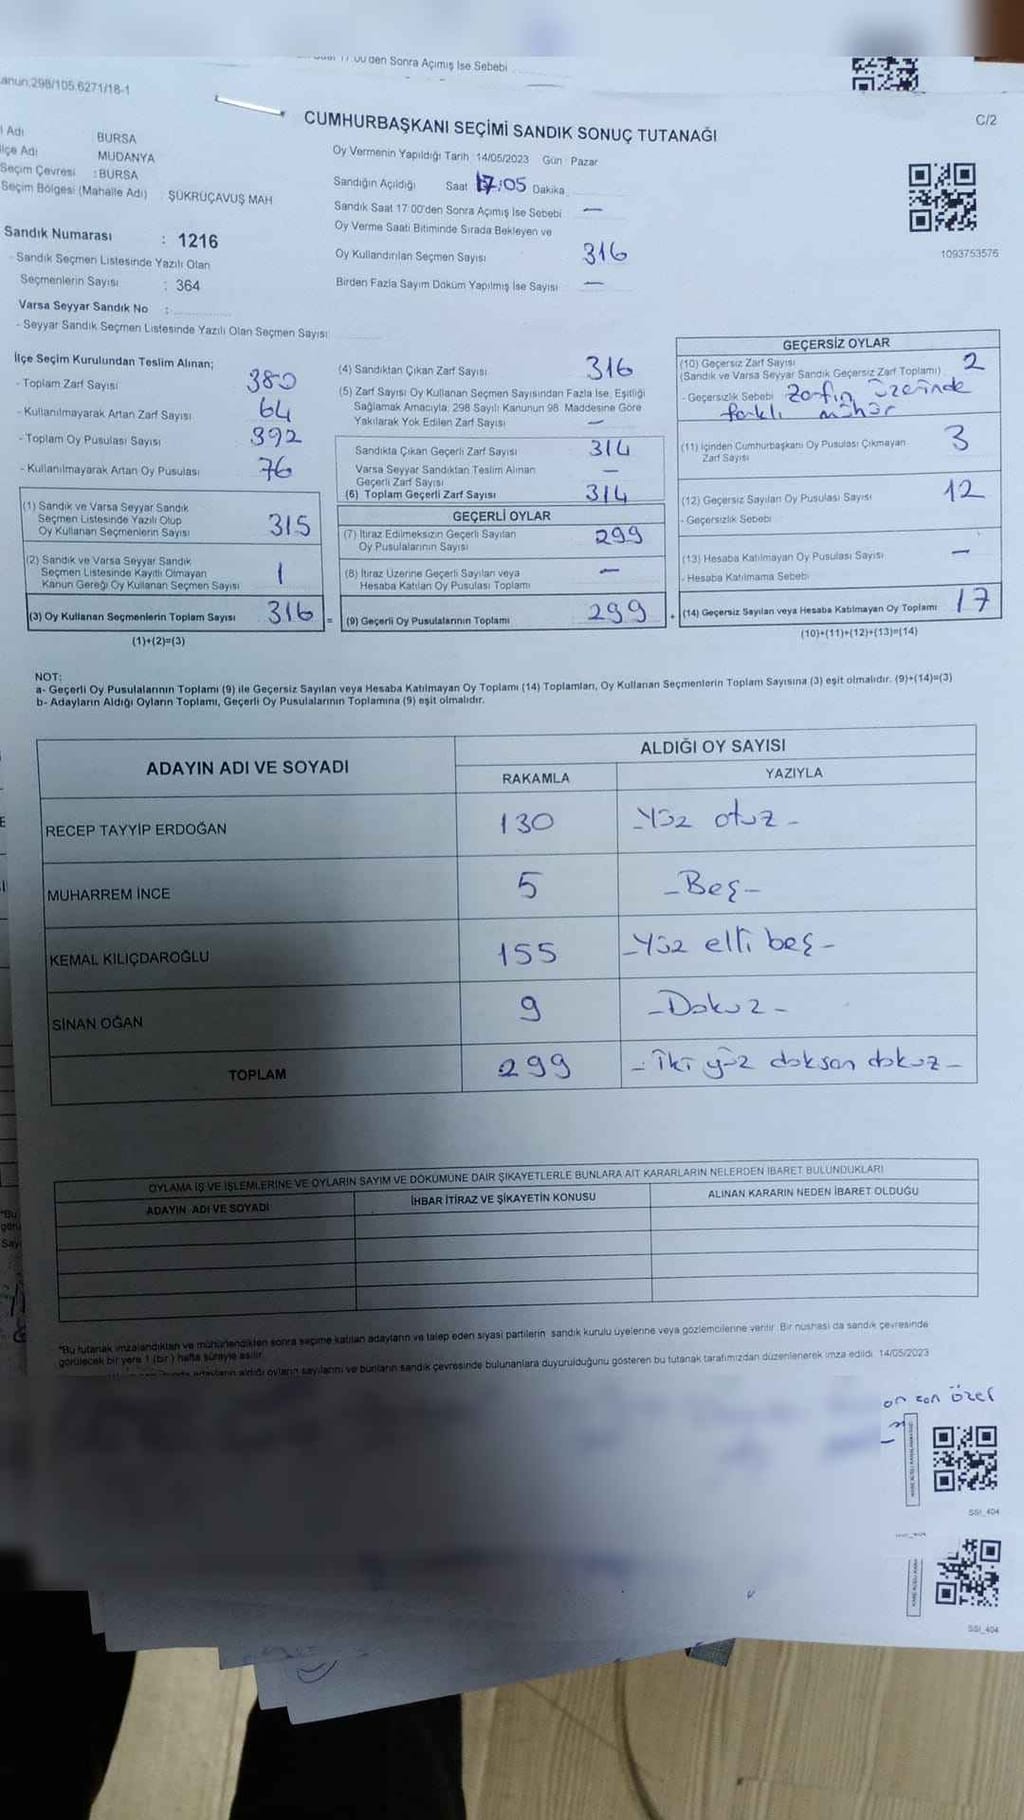 17.00'den Sonra Açımış Ise Sebebi
anun:298/105.6271/18-1
C/2
CUMHURBAŞKANI SEÇİMİ SANDIK SONUÇ TUTANAĞI
Oy Vermenin Yapıldığı Tarih 14/05/2023 Gün Pazar
Adı BURSA
lçe Adı MUDANYA
Seçim Çevresi : BURSA
Seçim Bölgesi (Mahalle Adı) : ŞÜKRÜÇAVUŞ MAH
Sandığın Açıldığı Saat 17:05 Dakika
Sandık Saat 17:00'den Sonra Açımış Ise Sebebi —
Oy Verme Saati Bitiminde Sırada Bekleyen ve
Oy Kullandırılan Seçmen Sayısı 316
Birden Fazla Sayım Döküm Yapılmış İse Sayısı —
1093753576
Sandık Numarası : 1216
- Sandık Seçmen Listesinde Yazılı Olan
Seçmenlerin Sayısı : 364
Varsa Seyyar Sandık No :
- Seyyar Sandık Seçmen Listesinde Yazılı Olan Seçmen Sayısı
İlçe Seçim Kurulundan Teslim Alınan;
- Toplam Zarf Sayısı 380
- Kullanılmayarak Artan Zarf Sayısı 64
- Toplam Oy Pusulası Sayısı 392
- Kullanılmayarak Artan Oy Pusulası 76
(1) Sandık ve Varsa Seyyar Sandık
Seçmen Listesinde Yazılı Olup
Oy Kullanan Seçmenlerin Sayısı 315
(2) Sandık ve Varsa Seyyar Sandık
Seçmen Listesinde Kayıtlı Olmayan
Kanun Gereği Oy Kullanan Seçmen Sayısı 1
(3) Oy Kullanan Seçmenlerin Toplam Sayısı 316 =
(1)+(2)=(3)
(4) Sandıktan Çıkan Zarf Sayısı 316
(5) Zarf Sayısı Oy Kullanan Seçmen Sayısından Fazla Ise, Eşitliği
Sağlamak Amacıyla, 298 Sayılı Kanunun 98. Maddesine Göre
Yakılarak Yok Edilen Zarf Sayısı —
Sandıkta Çıkan Geçerli Zarf Sayısı 314
Varsa Seyyar Sandıktan Teslim Alınan
Geçerli Zarf Sayısı —
(6) Toplam Geçerli Zarf Sayısı 314
GEÇERLİ OYLAR
(7) İtiraz Edilmeksizin Geçerli Sayılan
Oy Pusulalarının Sayısı 299
(8) İtiraz Üzerine Geçerli Sayılan veya
Hesaba Katılan Oy Pusulası Toplamı —
(9) Geçerli Oy Pusulalarının Toplamı 299 +
GEÇERSİZ OYLAR
(10) Geçersiz Zarf Sayısı
(Sandık ve Varsa Seyyar Sandık Geçersiz Zarf Toplamı) 2
- Geçersizlik Sebebi Zarfın üzerinde
farklı mühür
(11) İçinden Cumhurbaşkanı Oy Pusulası Çıkmayan
Zarf Sayısı 3
(12) Geçersiz Sayılan Oy Pusulası Sayısı 12
- Geçersizlik Sebebi
(13) Hesaba Katılmayan Oy Pusulası Sayısı —
- Hesaba Katılmama Sebebi
(14) Geçersiz Sayılan veya Hesaba Katılmayan Oy Toplamı 17
(10)+(11)+(12)+(13)=(14)
NOT:
a- Geçerli Oy Pusulalarının Toplamı (9) ile Geçersiz Sayılan veya Hesaba Katılmayan Oy Toplamı (14) Toplamları, Oy Kullanan Seçmenlerin Toplam Sayısına (3) eşit olmalıdır. (9)+(14)=(3)
b- Adayların Aldığı Oyların Toplamı, Geçerli Oy Pusulalarının Toplamına (9) eşit olmalıdır.
ADAYIN ADI VE SOYADI
ALDIĞI OY SAYISI
RAKAMLA YAZIYLA
RECEP TAYYİP ERDOĞAN 130 - Yüz otuz -
MUHARREM İNCE 5 - Beş -
KEMAL KILIÇDAROĞLU 155 - Yüz elli beş -
SİNAN OĞAN 9 - Dokuz -
TOPLAM 299 - İki yüz doksan dokuz -
OYLAMA İŞ VE İŞLEMLERİNE VE OYLARIN SAYIM VE DÖKÜMÜNE DAİR ŞİKAYETLERLE BUNLARA AİT KARARLARIN NELERDEN İBARET BULUNDUKLARI
ADAYIN ADI VE SOYADI İHBAR İTİRAZ VE ŞİKAYETİN KONUSU ALINAN KARARIN NEDEN İBARET OLDUĞU
*Bu tutanak imzalandıktan ve mühürlendikten sonra seçime katılan adayların ve talep eden siyasi partilerin sandık kurulu üyelerine veya gözlemcilerine verilir. Bir nüshası da sandık çevresinde
görülecek bir yere 1 (bir) hafta süreyle asılır.
adayların aldığı oyların sayılarını ve bunların sandık çevresinde bulunanlara duyurulduğunu gösteren bu tutanak tarafımızdan düzenlenerek imza edildi. 14/05/2023
özel
SSI_404
SSI_404